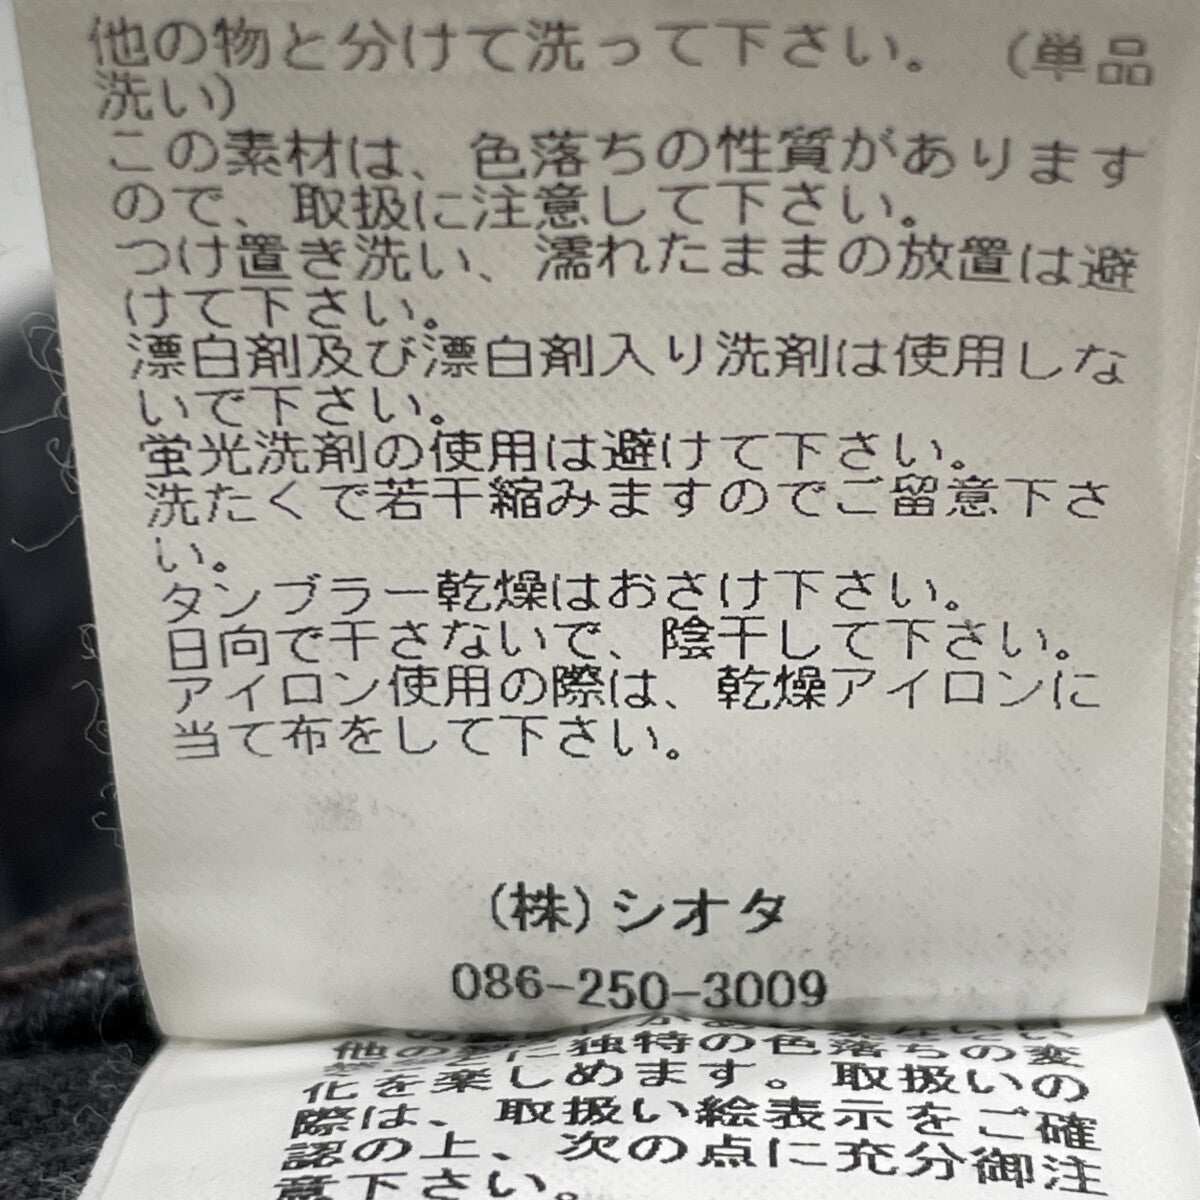 他の物と分けて洗って下さい。(単品
洗い)
この素材は、色落ちの性質があります
ので、取扱に注意して下さい。
つけ置き洗い、濡れたままの放置は避
けて下さい。
漂白剤及び漂白剤入り洗剤は使用しな
いで下さい。
蛍光洗剤の使用は避けて下さい。
洗たくで若干縮みますのでご留意下さ
い。
タンブラー乾燥はおさけ下さい。
日向で干さないで、陰干して下さい。
アイロン使用の際は、乾燥アイロンに
当て布をして下さい。
(株)シオタ
086-250-3009
に独特の色落ちの変
化を楽しめます。取扱いの
際は、取扱い絵表示をご確
認の上、次の点に充分御注
意下さい。